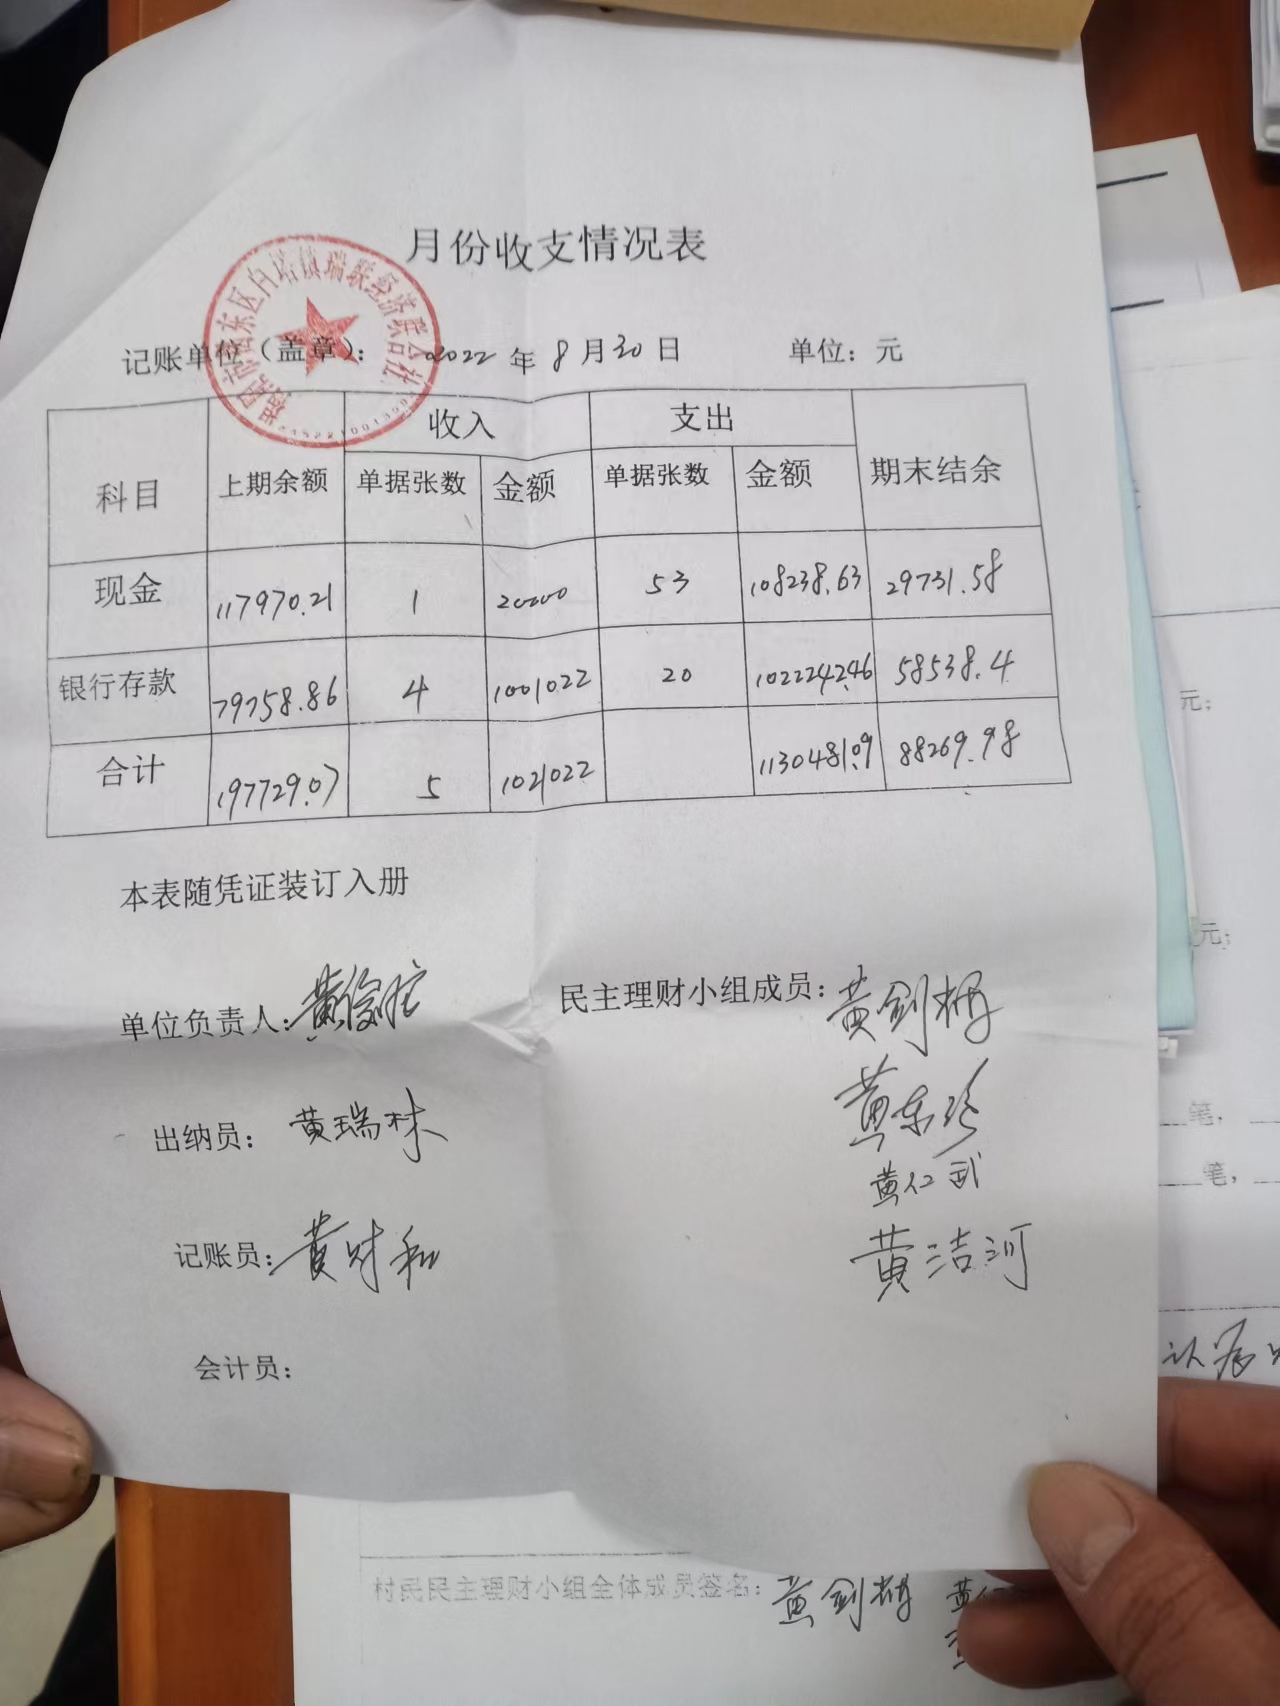 月份收支情况表
揭阳市揭东区白塔镇瑞联经济联合社
记账单位（盖章）： 2022 年 8 月 30 日 单位：元
科目 上期余额 收入 支出 期末结余
单据张数 金额 单据张数 金额
现金 117970.21 1 20000 53 108238.63 29731.58
银行存款 79758.86 4 1001022 20 1022242.46 58538.4
合计 197729.07 5 1021022 1130481.09 88269.98
本表随凭证装订入册
单位负责人： 黄俊
民主理财小组成员： 黄剑
黄东珍
出纳员： 黄瑞林
黄仁武
记账员： 黄财和
黄洁河
会计员：
元；
元；
笔，
笔，
认为
村民民主理财小组全体成员签名： 黄剑 黄仁